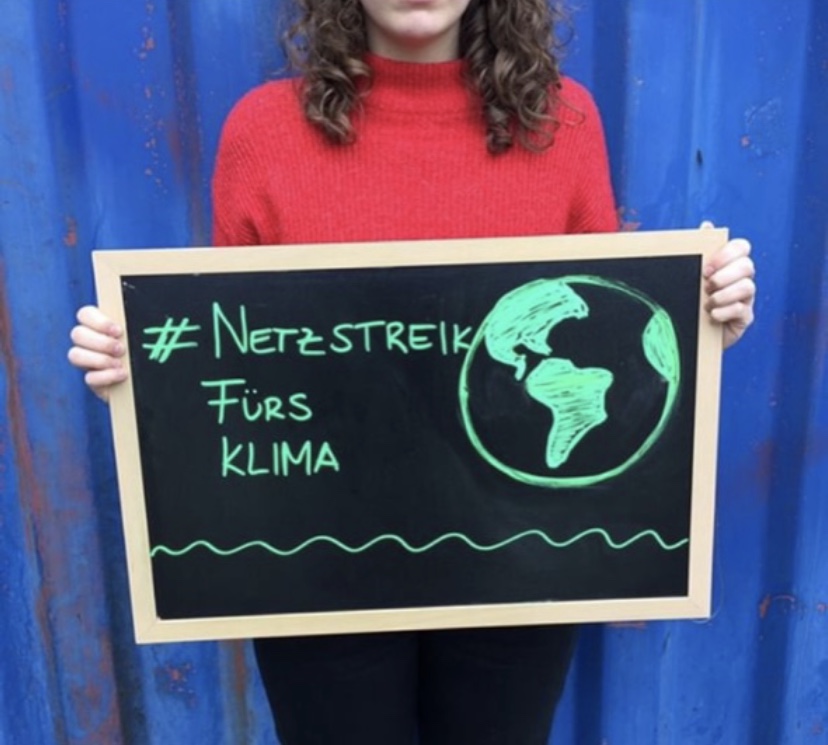 # NETZSTREIK
FÜRS
KLIMA